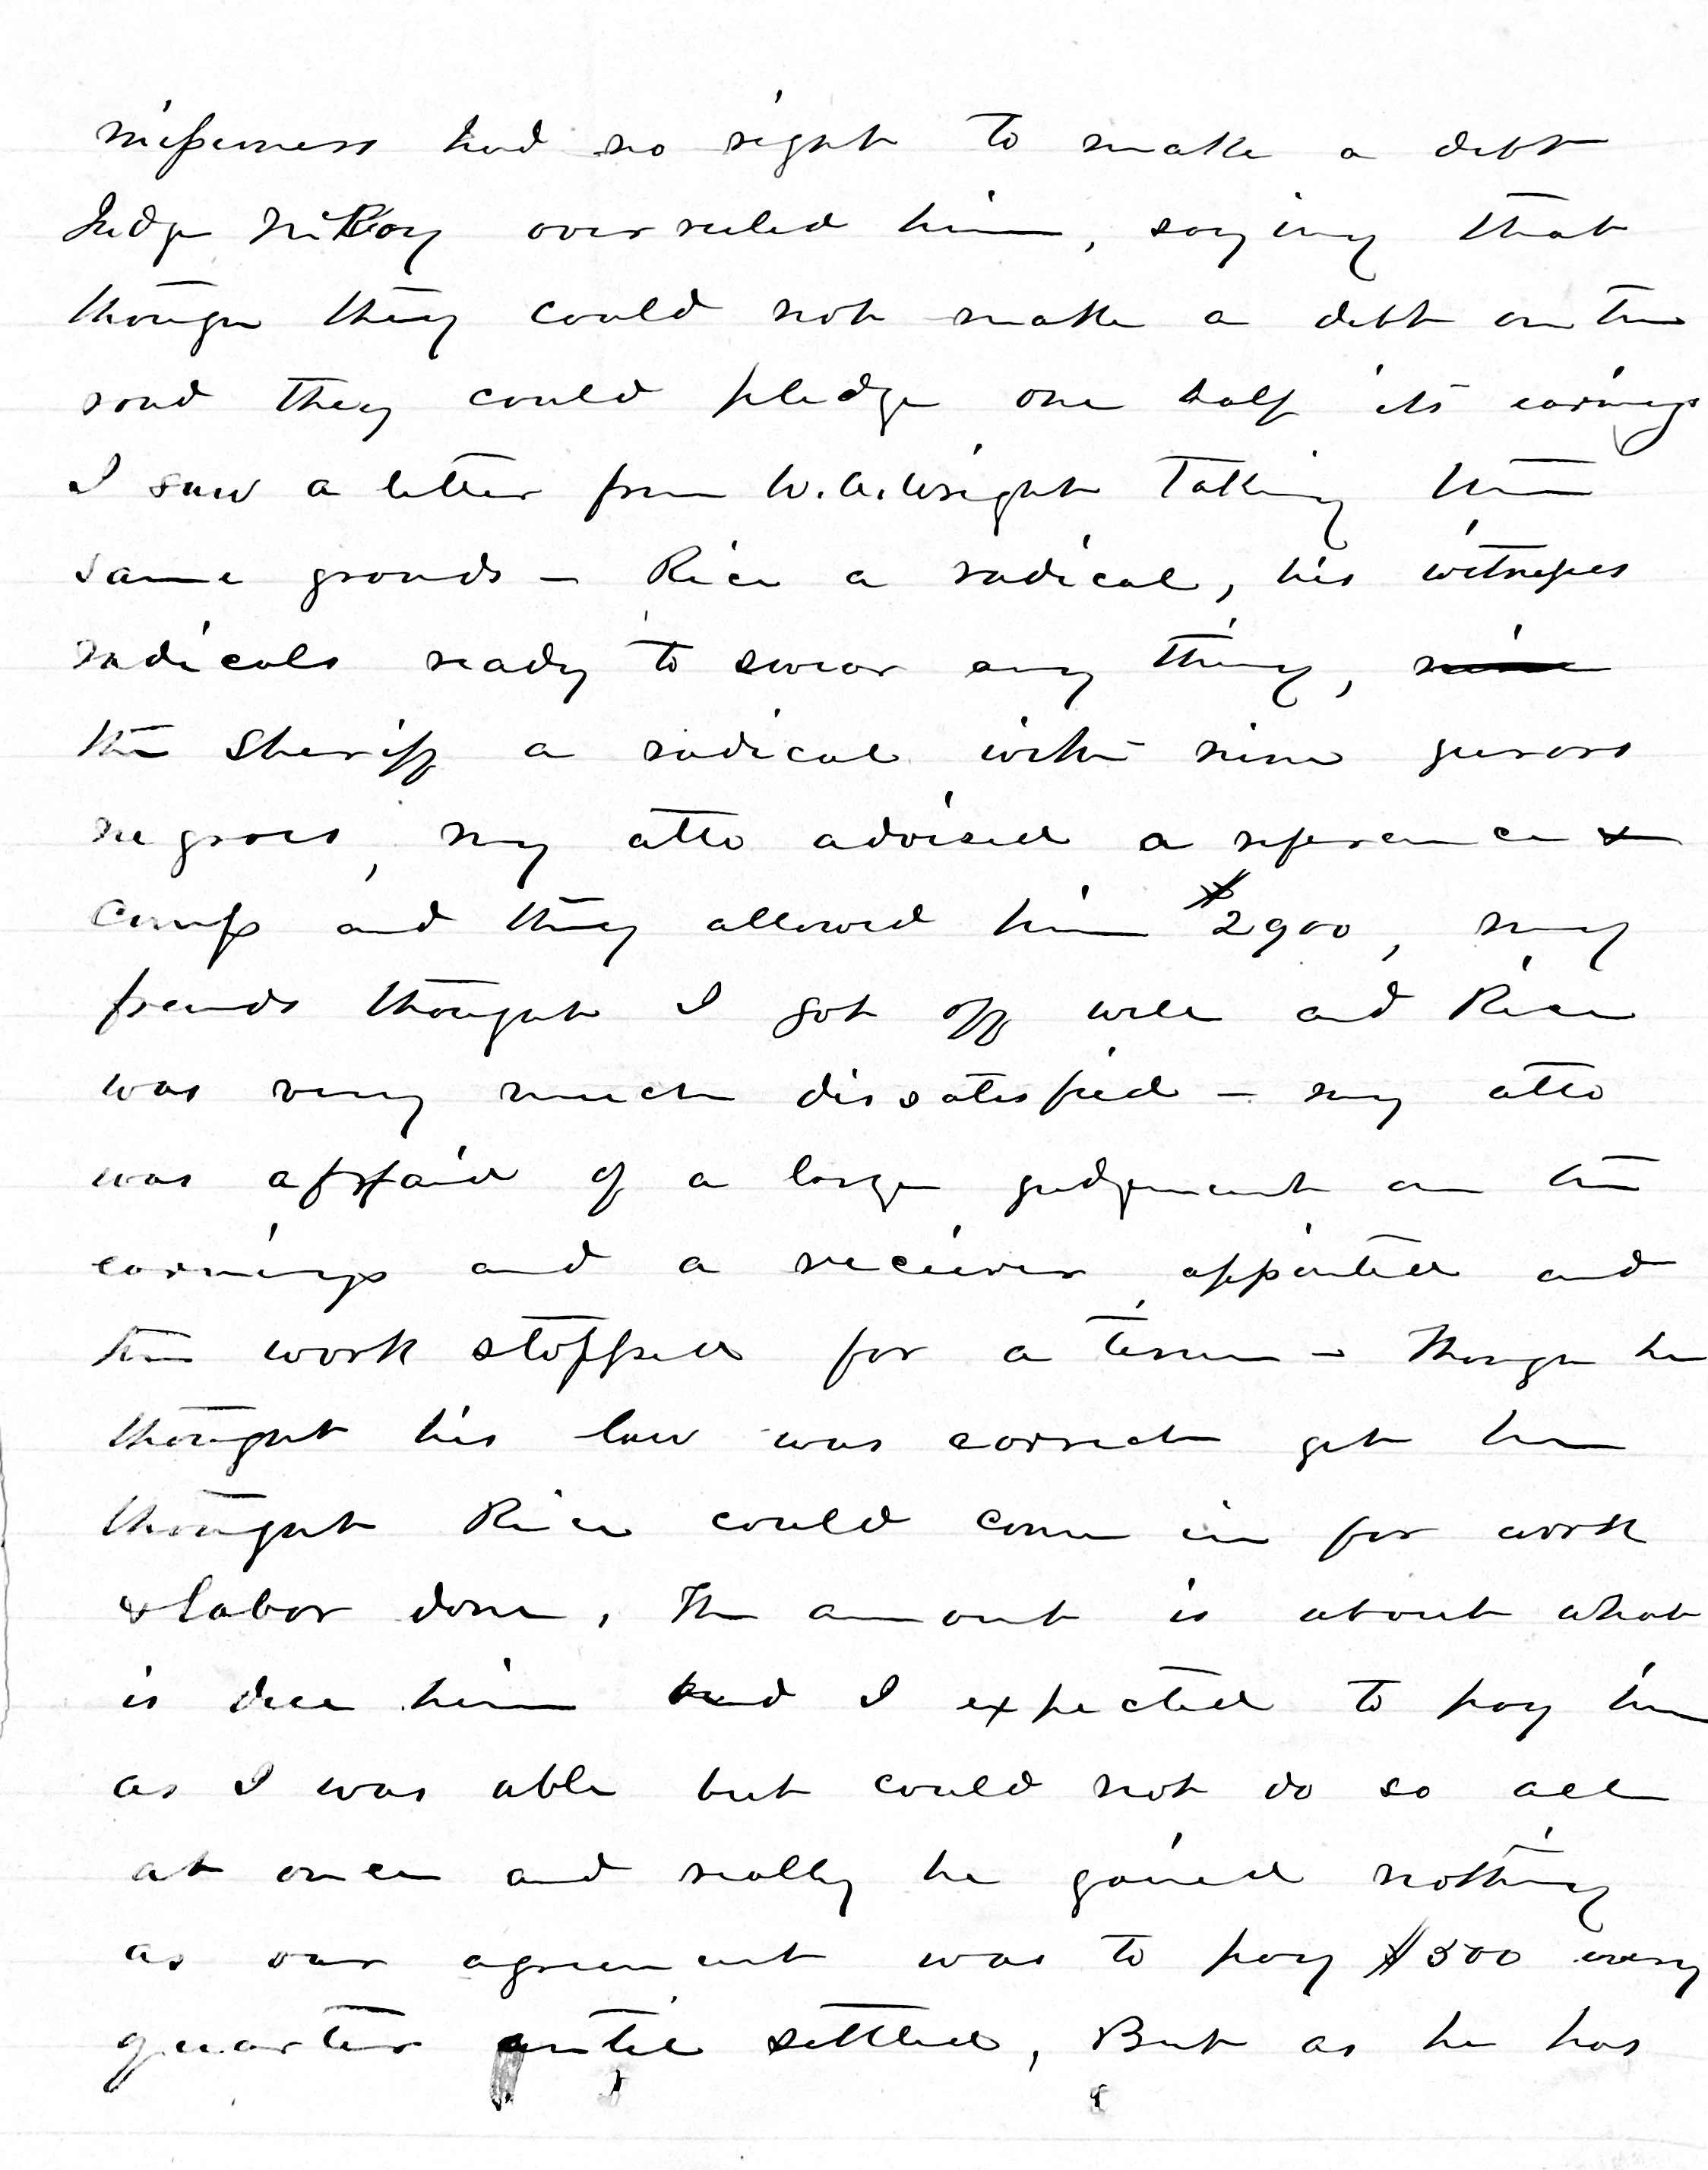 had no right to make a debt
Judge McKoy over ruled him, saying that
though they could not make a debt on the
road they could pledge one half its earnings
I saw a letter from W.A. Wright taking the
same grouds - Rice a radical, his witnesses
radicals ready to swear any thing, nine
the Sheriff a radical with nine jurors
negroes, my atto advised a referance &
comps and they allowed him $2900, my
freinds thought I got off well and Rice
was very much dissatisfied - my atto
was affraid of a large judgement on the
earnings and a reciever appointed and
the work stopped for a time - Though he
thought his law was correct yet he
thought Rice could come in for work
& labor done, The amount is about what
is due him and I expected to pay him
as I was able but could not do so all
at once and really he gained nothing
as our agreement was to pay $300 every
quarter until settled, But as he has